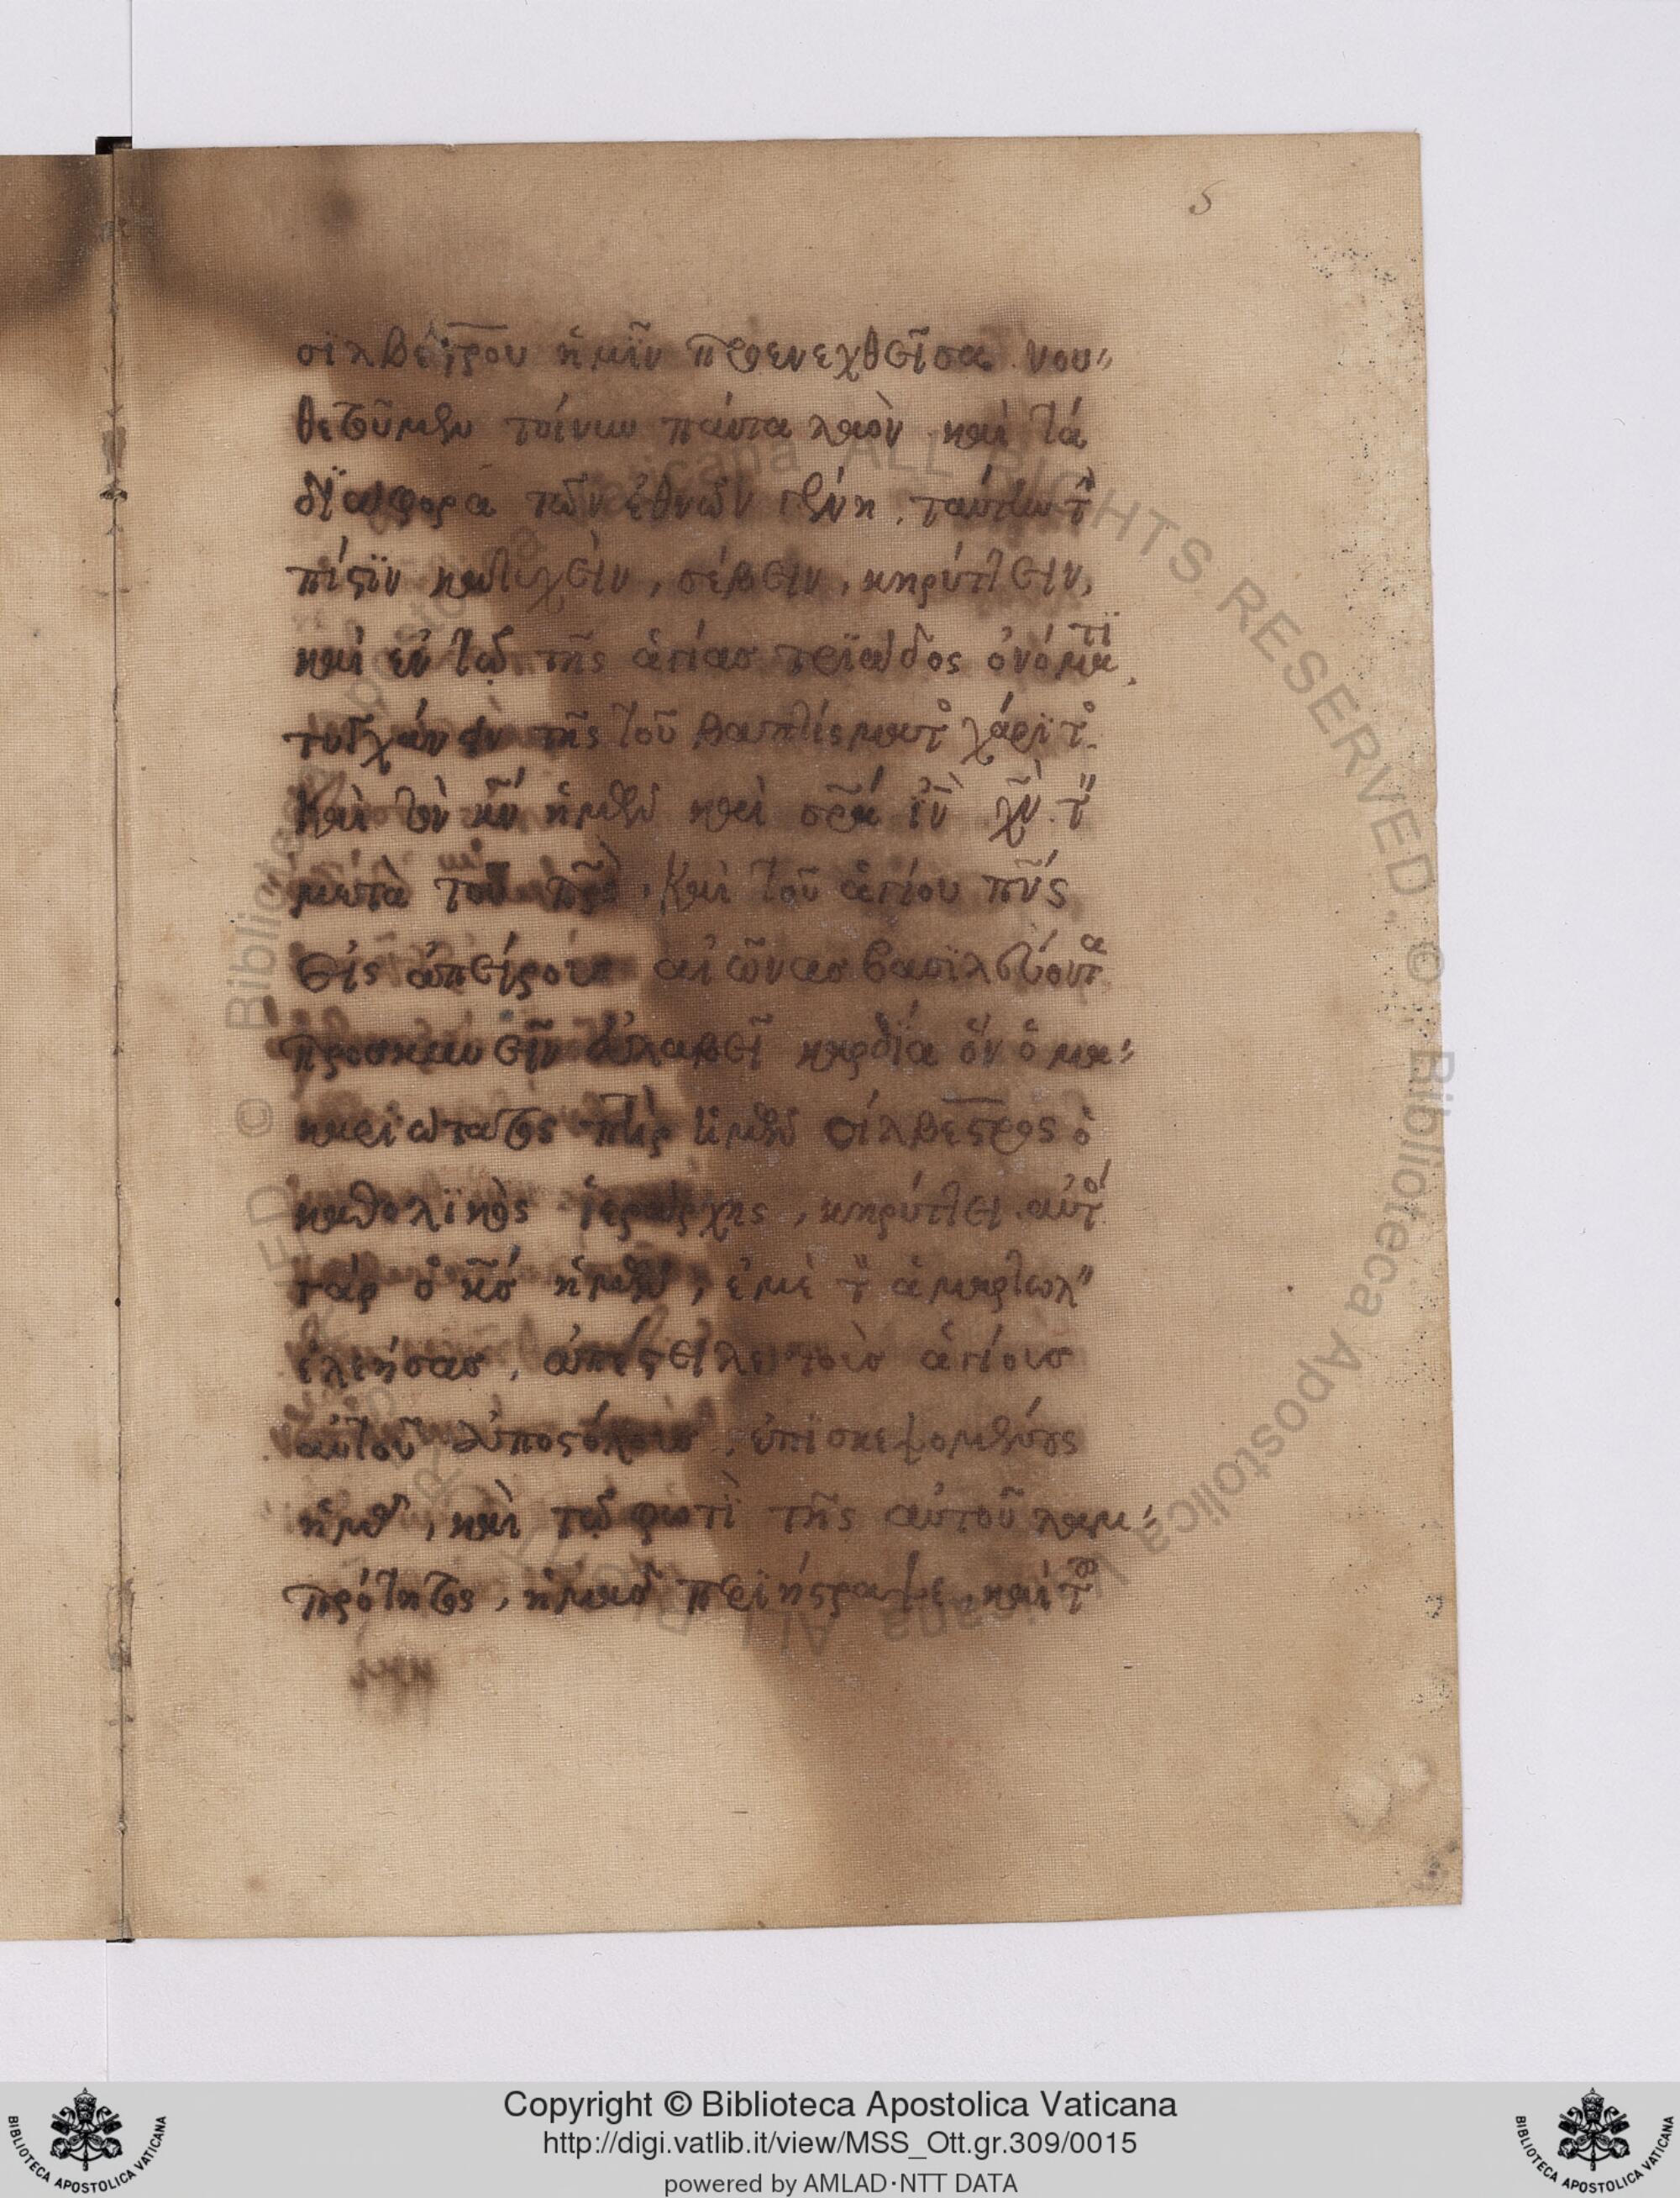 5
σϊλβέστρου ἡμῖν προενεχθεῖσα. νου-
θετοῦμεν τοίνυν πάντα λαὸν καὶ τὰ
διάφορα τῶν ἐθνῶν ἔθνη. ταύτην τ̂
πίστϊν κατέχειν, σέβειν, κηρύττειν,
καὶ ἐν τῷ τῆς ἁγίας τριάδος ὀνόματϊ
τυγχάνειν τῆς τοῦ βαπτίσματο χάριτο.
καὶ τὸν κ̅ν̅ ἡμῶν καὶ σ̅ρ̅α̅ ι̅ν̅ χ̅ν̅ τ
μετὰ τοῦ π̅ρ̅ς̅, καὶ τοῦ ἁγίου π̅ν̅ς̅
εἰς ἀπείρους αἰῶνας βασιλεύοντα
προσκυνεῖν εὐλαβεῖ καρδία ὃν ὁ μα-
καριώτατος π̅η̅ρ̅ ἡμῶν σίλβεστρος ὁ
καθολϊκὸς ἱεράρχης, κηρύττει. αὐτὸ
γὰρ ὁ κ̅ς̅ ἡμῶν, ἐμὲ τ ἁμαρτωλ
ἐλεήσας, ἀπέστειλε τοὺς ἁγίους
αὐτοῦ ἀποστόλους, ἐπισκεψομένους
ἡμᾶς, καὶ τῷ φωτὶ τῆς αὐτοῦ λαμ-
πρότητος, ἡμᾶς περιήστραψε, καὶ τ
Copyright © Biblioteca Apostolica Vaticana
http://digi.vatlib.it/view/MSS_Ott.gr.309/0015
powered by AMLAD·NTT DATA
BIBLIOTECA APOSTOLICA VATICANA
BIBLIOTECA APOSTOLICA VATICANA